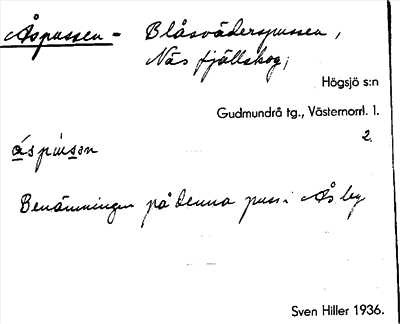 Åspussen - Blåsväderspussen,
Näs fjällskog;
Högsjö s:n
Gudmundrå tg., Västernorrl. l.
2.
åspúsən
Benämningen på denna puss i Ås by
Sven Hiller 1936.